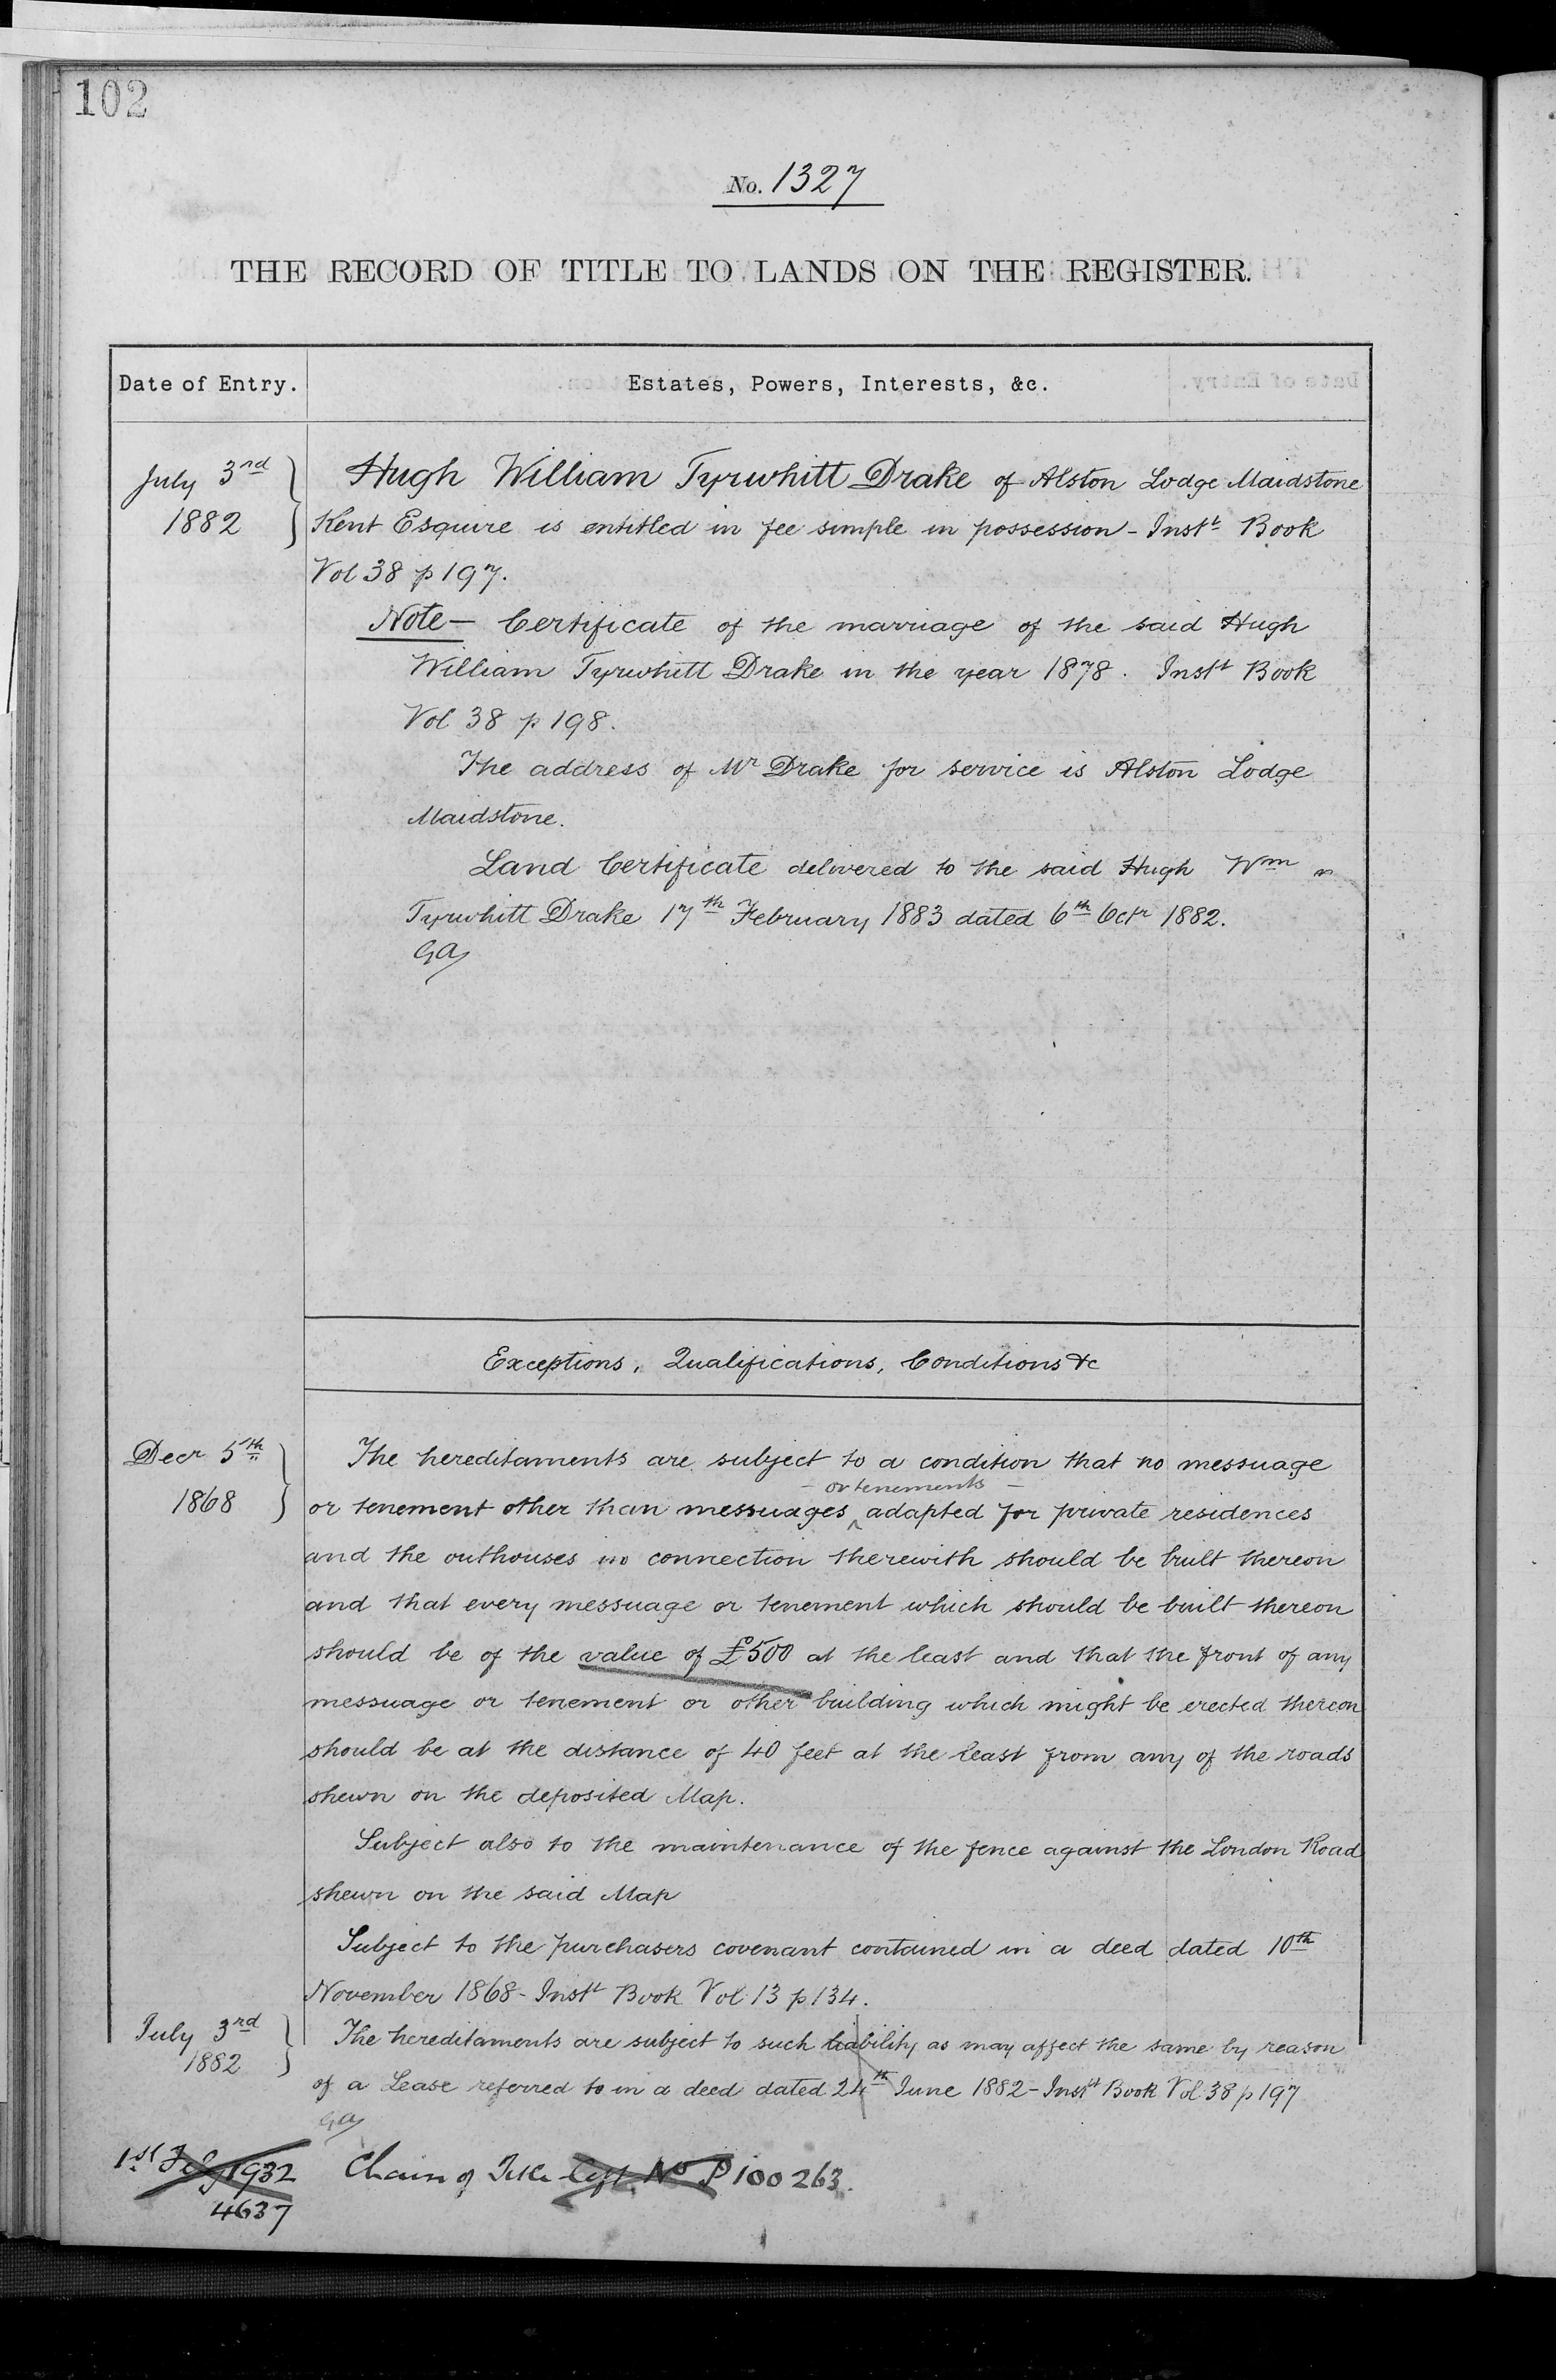 102
No. 1327
THE RECORD OF TITLE TO LANDS ON THE REGISTER.
Date of Entry.
Estates, Powers, Interests, &c.
July 3rd
1882
Hugh William Tyrwhitt Drake of Alston Lodge Maidstone
Kent Esquire is entitled in fee simple in possession - Instt Book
Vol 38 p 197.
Note - Certificate of the marriage of the said Hugh
William Tyrwhitt Drake in the year 1878. Instt Book
Vol 38 p 198.
The address of Mr Drake for service is Alston Lodge
Maidstone.
Land Certificate delivered to the said Hugh Wm
Tyrwhitt Drake 17th February 1883 dated 6th Octr 1882.
GA
Exceptions, Qualifications, Conditions &c
Decr 5th
1868
The hereditaments are subject to a condition that no messuage
- or tenements -
or tenement other than messuages ^ adapted for private residences
and the outhouses in connection therewith should be built thereon
and that every messuage or tenement which should be built thereon
should be of the value of £500 at the least and that the front of any
messuage or tenement or other building which might be erected thereon
should be at the distance of 40 feet at the least from any of the roads
shewn on the deposited Map.
Subject also to the maintenance of the fence against the London Road
shewn on the said Map
Subject to the purchasers covenant contained in a deed dated 10th
November 1868 - Instt Book Vol 13 p 134.
July 3rd
1882
The hereditaments are subject to such liability as may affect the same by reason
of a Lease referred to in a deed dated 24th June 1882 - Instt Book Vol 38 p 197
GA
1st 1932
4637
Chain of Title No P100263.